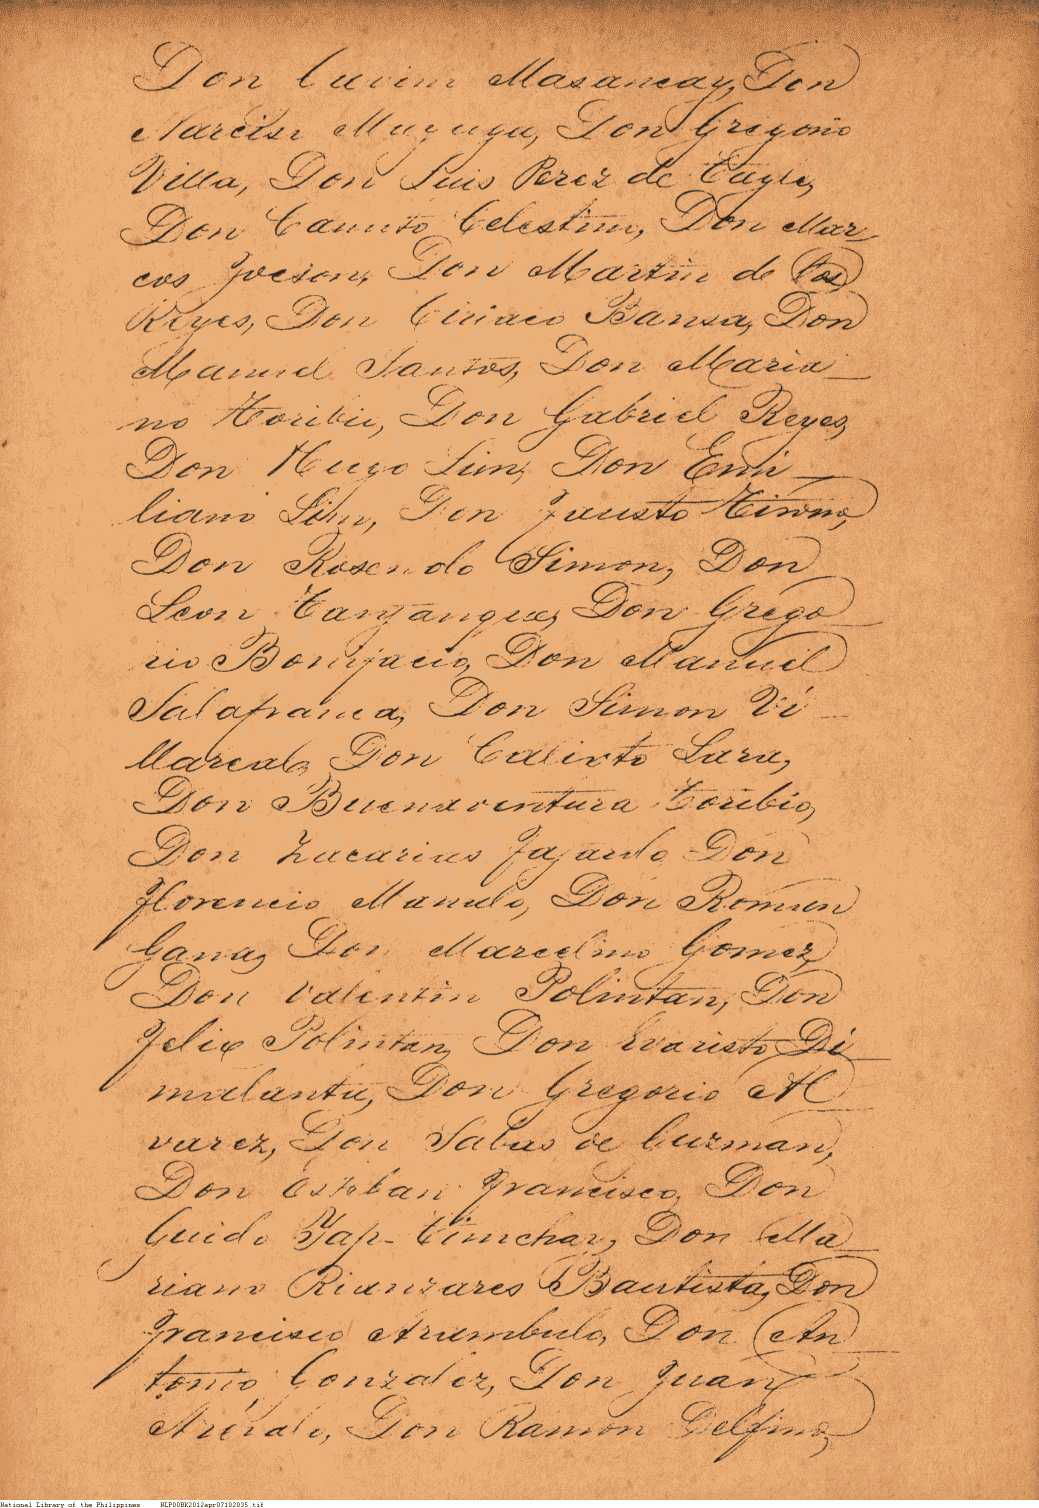 Don Masancay, Don
Narciso Mayuga, Don Gregorio
Villa, Don Luis Perez de Tagle,
Don Canuto Celestino, Don Mar-
cos Jocson, Don Martin de los
Reyes, Don Ciriaco Bausa, Don
Manuel Santos, Don Maria-
no Toribio, Don Gabriel Reyes,
Don Hugo Lim, Don Emi-
liano Lim, Don Fausto Tinorio,
Don Rosendo Simon, Don
Leon Tanjanque, Don Grego-
rio Bonifacio, Don Manuel
Salafranca, Don Simon Vi-
llareal, Don Calixto Lara,
Don Buenaventura Toribio,
Don Zacarias Fajardo, Don
Florencio Manalo, Don Roman
Gana, Don Marcelino Gomez,
Don Valentin Polintan, Don
Felix Polintan, Don Evaristo Di-
malanta, Don Gregorio Al-
varez, Don Sabas de Guzman,
Don Esteban Francisco, Don
Guido Yap-Tinchay, Don Ma-
riano Rianzares Bautista, Don
Francisco Arambulo, Don An-
tonio Gonzalez, Don Juan
Arévalo, Don Ramon Delfino,
National Library of the Philippines NLPOOBK2012apr07102035.tif